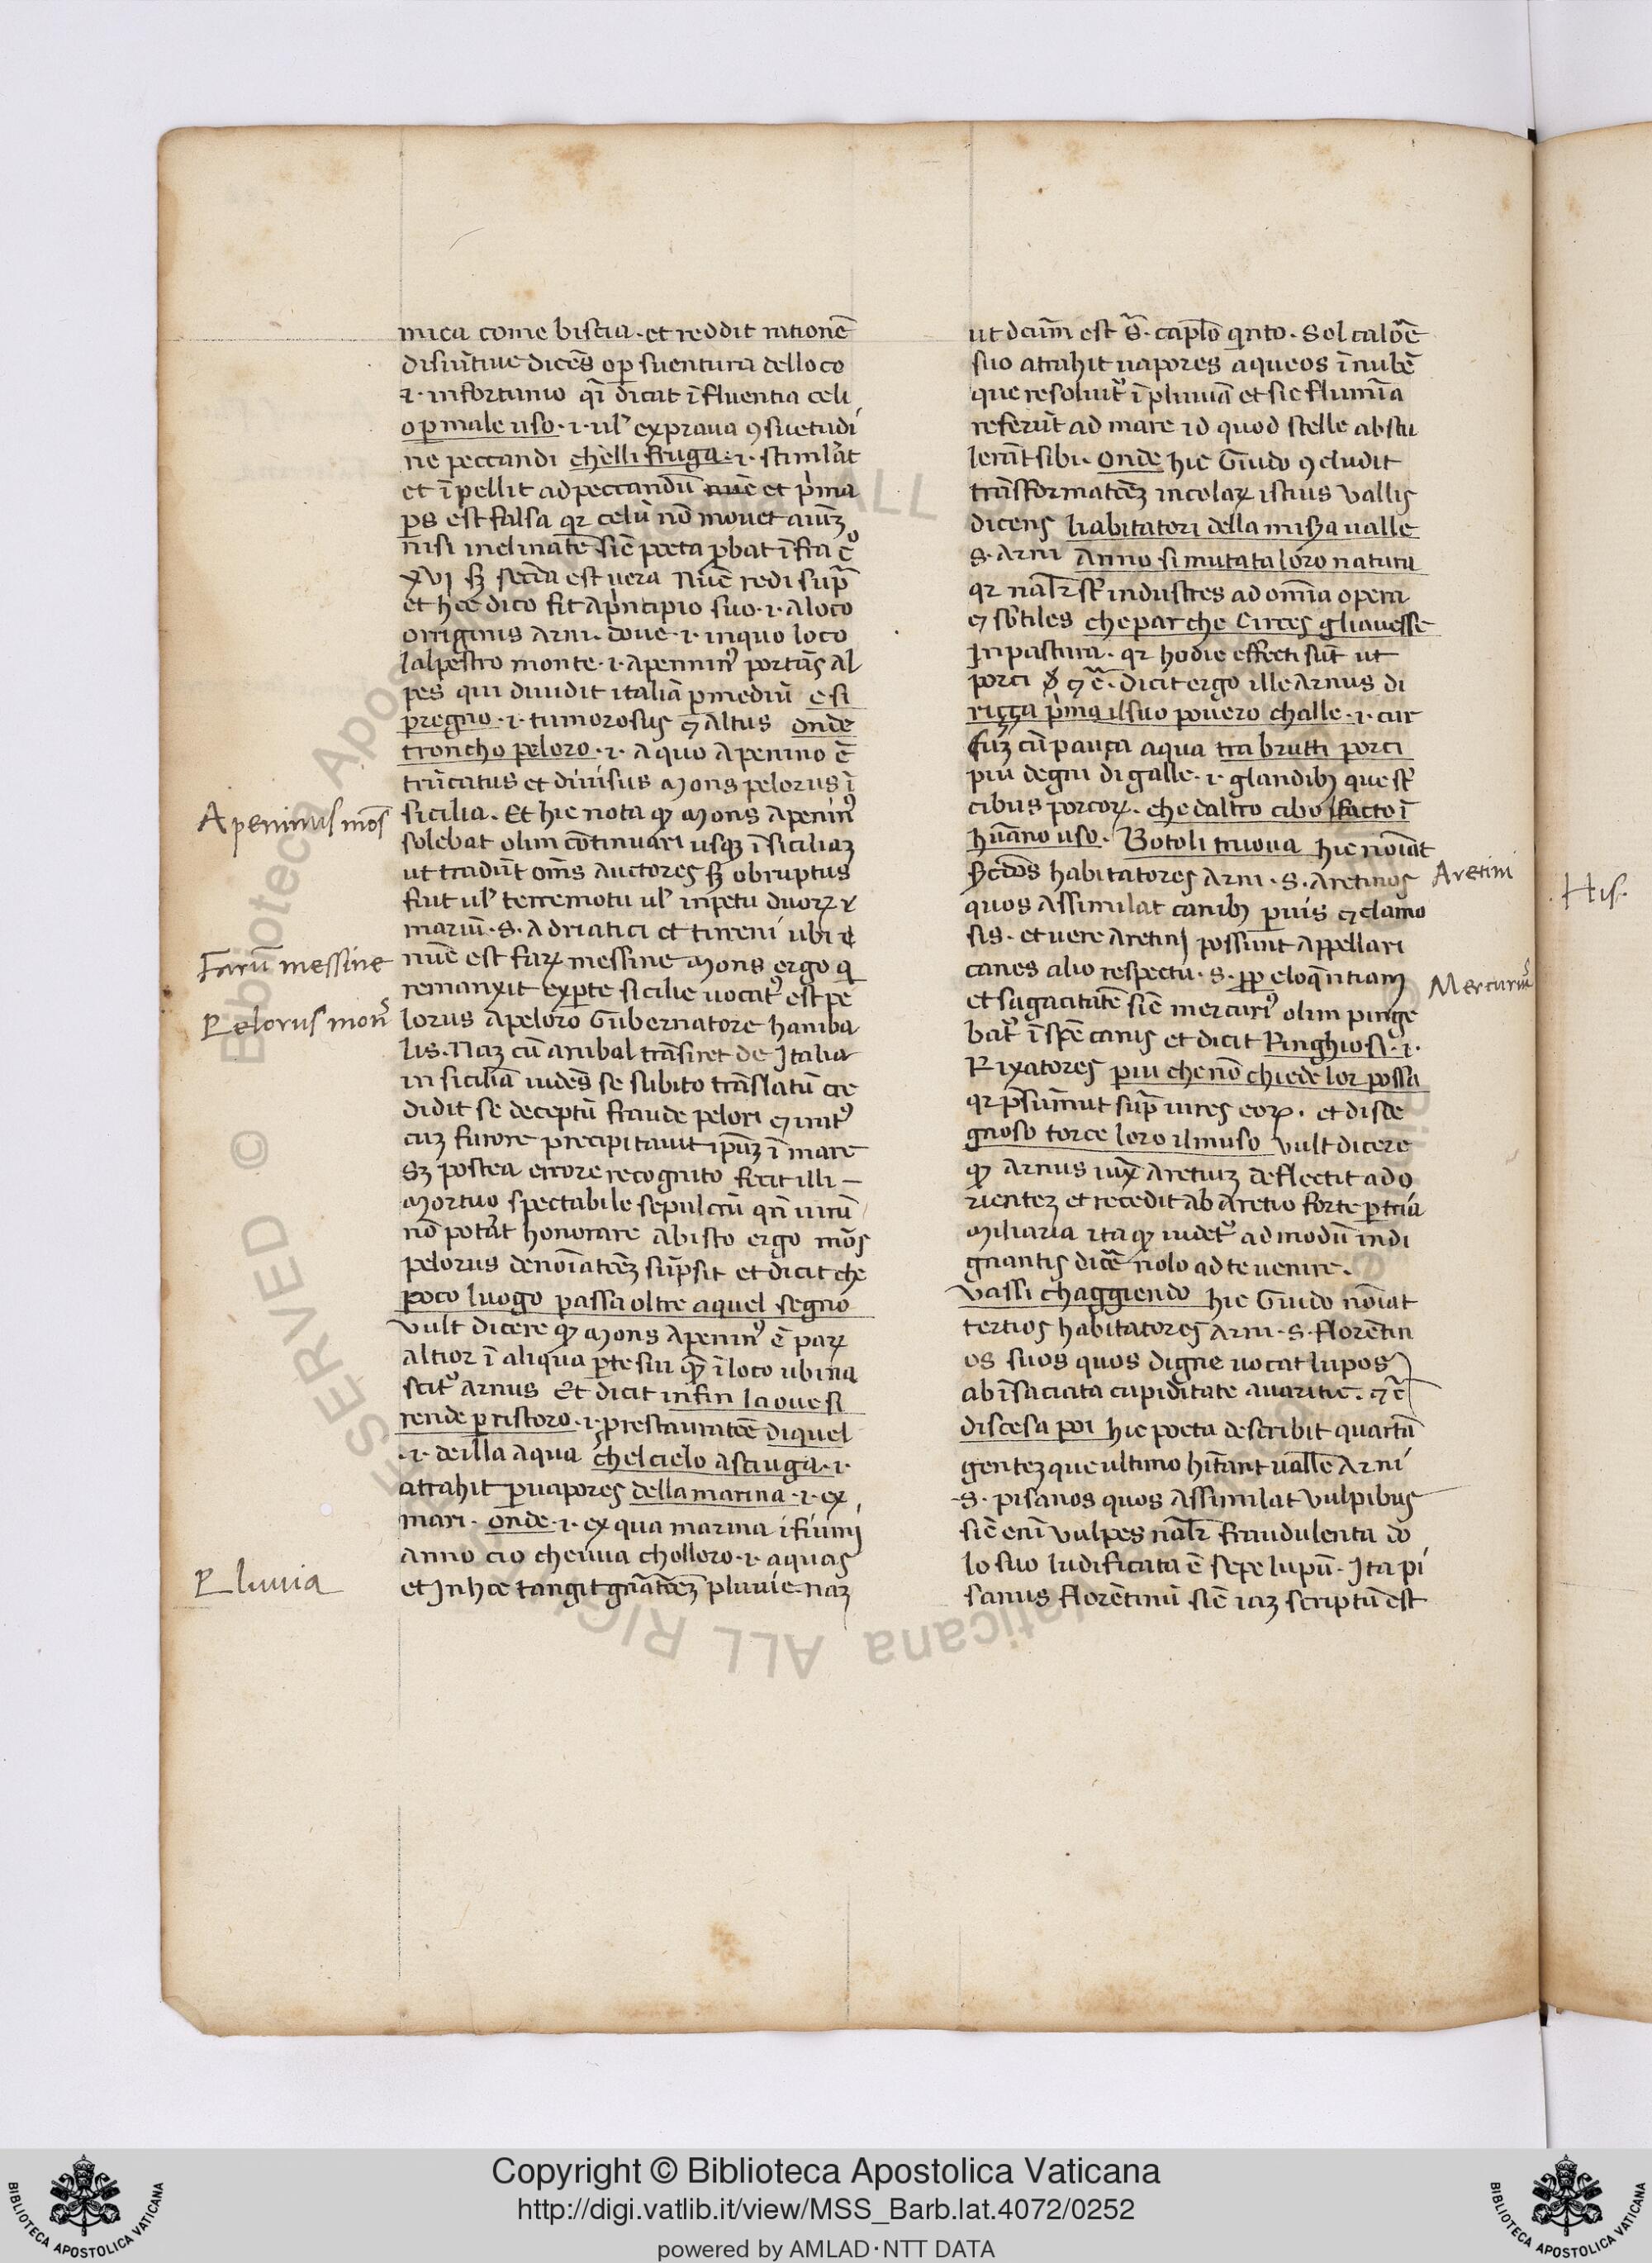 mica come biscia . et reddit rationē
disiūtiue dicēs op̱ suentura del loco
.i. infortunio q̄i dicat īfluentia celi
o p̱ male uso .i. ul' ex praua ꝯsuetudi
ne peccandi chelli fruga .i. stimlāt
et īpellit ad peccandū et pima
p̱s est falsa qꝛ celū nō mouet aīuꝫ
nisi inclinatē sic̄ poeta ꝓbat īfra c̊
xvj sꝫ sec̄da est uera Nūc redi sup̄
et hec dico fit a pincipio suo .i. a loco
originis arni . doue .i. in quo loco
lalpestro monte .i. apenninꝰ portās al
pes qui diuidit italiā p̱ mediū e si
pregno .i. tumorosus ⁊ altus onde
troncho peloro .i. a quo apenino ē
trūcatus et diuisus mons pelorus ī
sicilia . Et hic nota qꝫ mons apeninꝰ
solebat olim cōtinuari usqꝫ ī siciliaꝫ
ut tradūt om̄s auctores sꝫ obruptus
fuit ul' terremotu ul' inpetu duorꝝ
mariū . s. adriatici et tireni ubi
nūc est farꝝ messine mons ergo q̱
remanxit ex p̱te sicilie uocatꝰ est pe
lorus a peloro Gubernatore haniba
lis . Naꝫ cū anibal trāsiret de Italia
in siciliā uidēs se subito trāslatū cre
didit se deceptū fraude pelori ⁊ iratꝰ
cuꝫ furore precipitauit ip̄uꝫ ī mare
Sꝫ postea errore recognito fecit illi –
mortuo spectabile sepulcrū qn̄ uiuū
nō potāt honorare ab isto ergo mōs
pelorus denoīateꝫ sūpsit et dicit che
poco luogo passa oltre aquel segno
vult dicere qꝫ mons apeninꝰ ē parꝝ
altior ī aliqua p̱te sui qꝫ ī loco ubi na
scitꝰ arnus Et dicit infin la oue si
rende p̱ ristoro .i. p̱ restauratōē di quel
.i. de illa aqua chel cielo asciuga .i.
atrahit p̱ uapores della marina .i. ex
mari . onde .i. ex qua marina i fiumi
anno cio cheuua cholloro .i. aquas
et In hoc tangit gn̄atōeꝫ pluuie naꝫ
Apeninus mōs
Farū messine
Pelorus monˢ
Pluuia
ut dcūm est s̄. caplō qnto . Sol calōē
suo atrahit uapores aqueos ī nubē
que resoluitꝰ ī pluuiā et sic flumīa
referūt ad mare id quod stelle abstu
lerāt sibi . onde hic Guido ꝯcludit
trāsformatōeꝫ incolaꝝ istius vallis
dicens habitatori della misꝫa ualle
s. arni anno si mutata loro natura
qꝛ nālr st̄ industres ad omīa opera
⁊ sbtiles che par che Circes gliauesse
In pastura . qꝛ hodie effecti sūt ut
porci ⁊c̄ . dicit ergo ille arnus di
riçça pima il suo pouero challe .i. cur
suꝫ cū pauca aqua tra brutti porci
piu degni di galle .i. glandibꝫ que st̄
cibus porcoꝝ . che daltro cibo facto ī
hūano uso . Botoli truoua hic noīat
sꝫcdos habitatores arni . s. aretinos
quos assimilat canibꝫ p̱uis ⁊ clamo
sis . et uere aretinj possunt appellari
canes alio respectu . s. ꝓp̱ eloq̄ntiam
et sagacitatē sic̄ mercuriꝰ olim pinge
batꝰ ī spē canis et dicit Ringhiosi .i.
Rixatores piu che nō chiede lor possa
qꝛ p̄sūmut sup̄ uires eoꝝ . et disde
gnoso torce loro il muso vult dicere
qꝫ arnus iuxᵃ aretiuꝫ deflectit ad o
rientez et recedit ab aretio forte p̱ tria
miliaria ita qꝫ uidetꝰ ad modū indi
gnantis dicē nolo ad te uenire .
Vassi chaggiendo hic Guido nōiat
tertios habitatores arni . s. florētin
os suos quos digne uocat lupos
ab īsaciata cupiditate auaritie . ⁊c̄
discesa poi hic poeta describit quartā
gentez que ultimo hītant uallē arni
s. pisanos quos assimilat vulpibus
sic̄ eni vulpes nālr fraudulenta do
lo suo ludificata ē sepe lupū . Ita pi
sanus florētinū sic̄ iaꝫ scriptū est
Aretini
Mercuriuˢ
His.
Copyright © Biblioteca Apostolica Vaticana
http://digi.vatlib.it/view/MSS_Barb.lat.4072/0252
powered by AMLAD·NTT DATA